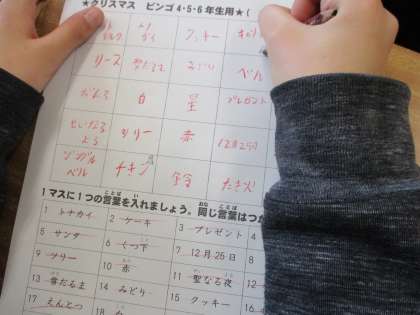 ★クリスマス ビンゴ 4・5・6年生用★(
クッキー
リース みどり ベル
だんろ 白 星 プレゼント
ツリー 赤 12月25日
ジングル
ベル チキン 鈴 たき火
1マスに1つの言葉を入れましょう。同じ言葉はつか
1 トナカイ 2 ケーキ 3 プレゼント 4
5 サンタ 6 くつ下 7 12月25日 8
9 ツリー 10 赤 11 聖なる夜 12
13 雪だるま 14 みどり 15 クッキー 16
17 えんとつ 18